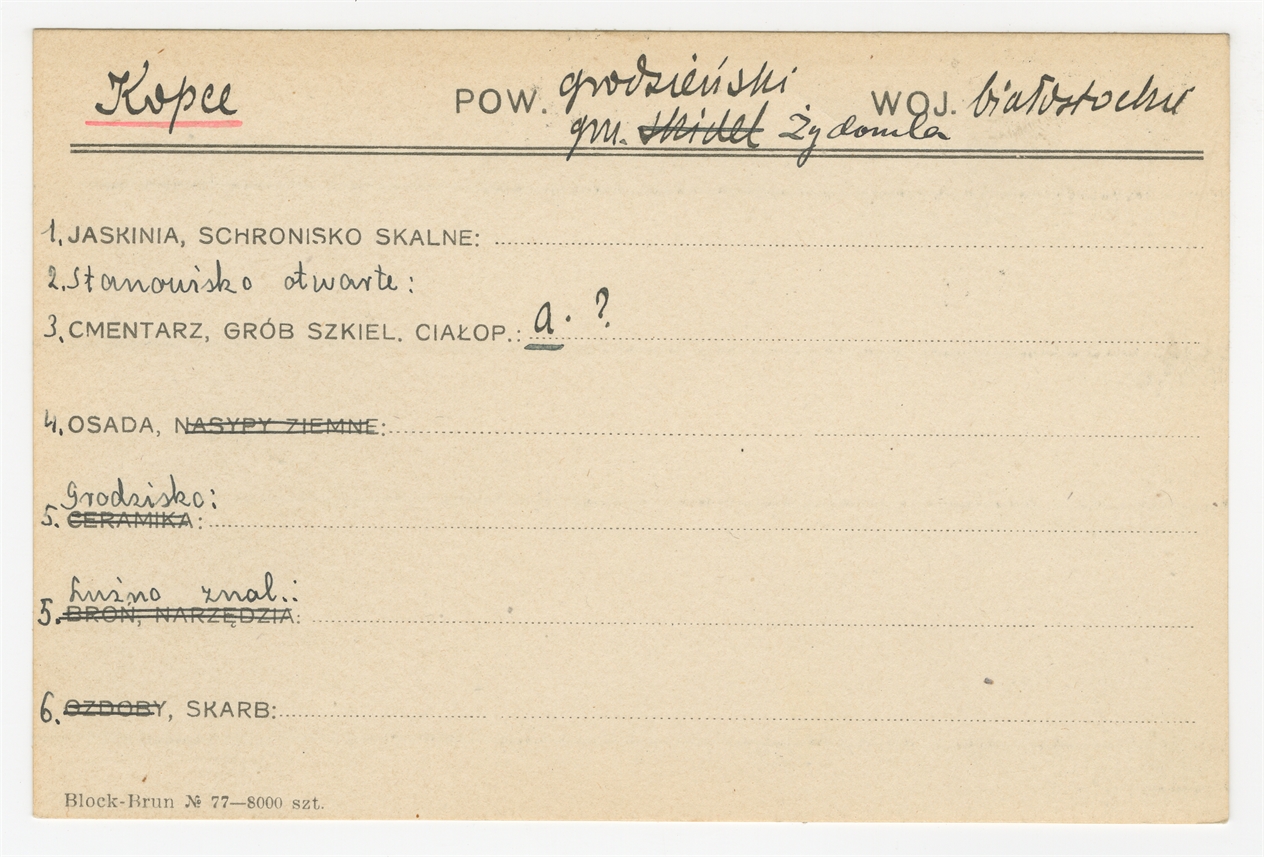 Kopce POW. grodzieński WOJ. białostockie
gm. Skidel Żydomla
1. JASKINIA, SCHRONISKO SKALNE:
2. Stanowisko otwarte:
3. CMENTARZ, GRÓB SZKIEL. CIAŁOP.: a. ?
4. OSADA, NASYPY ZIEMNE:
Grodzisko:
5. CERAMIKA:
Luźno znal.:
5. BROŃ, NARZĘDZIA:
6. OZDOBY, SKARB:
Block-Brun № 77—8000 szt.